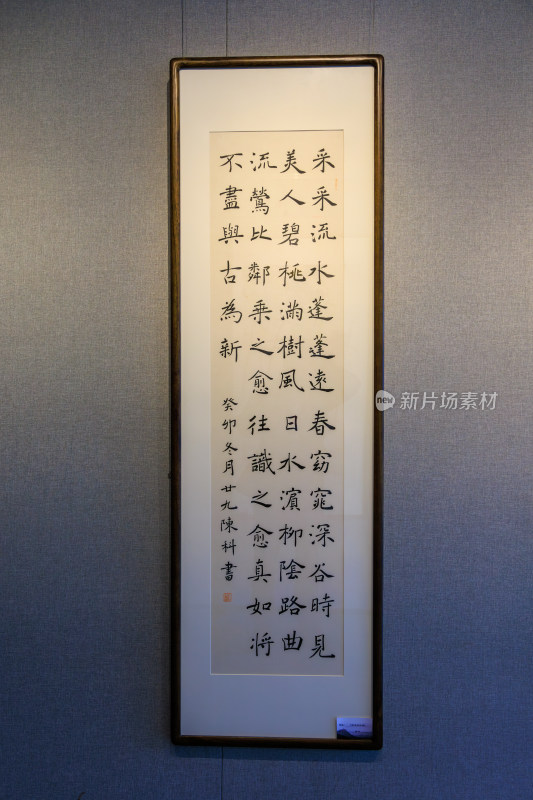 采采流水蓬蓬遠春窈窕深谷時見
美人碧桃滿樹風日水濱柳陰路曲
流鶯比鄰乘之愈往識之愈真如將
不盡與古為新
癸卯冬月廿九陳科書
new 新片场素材